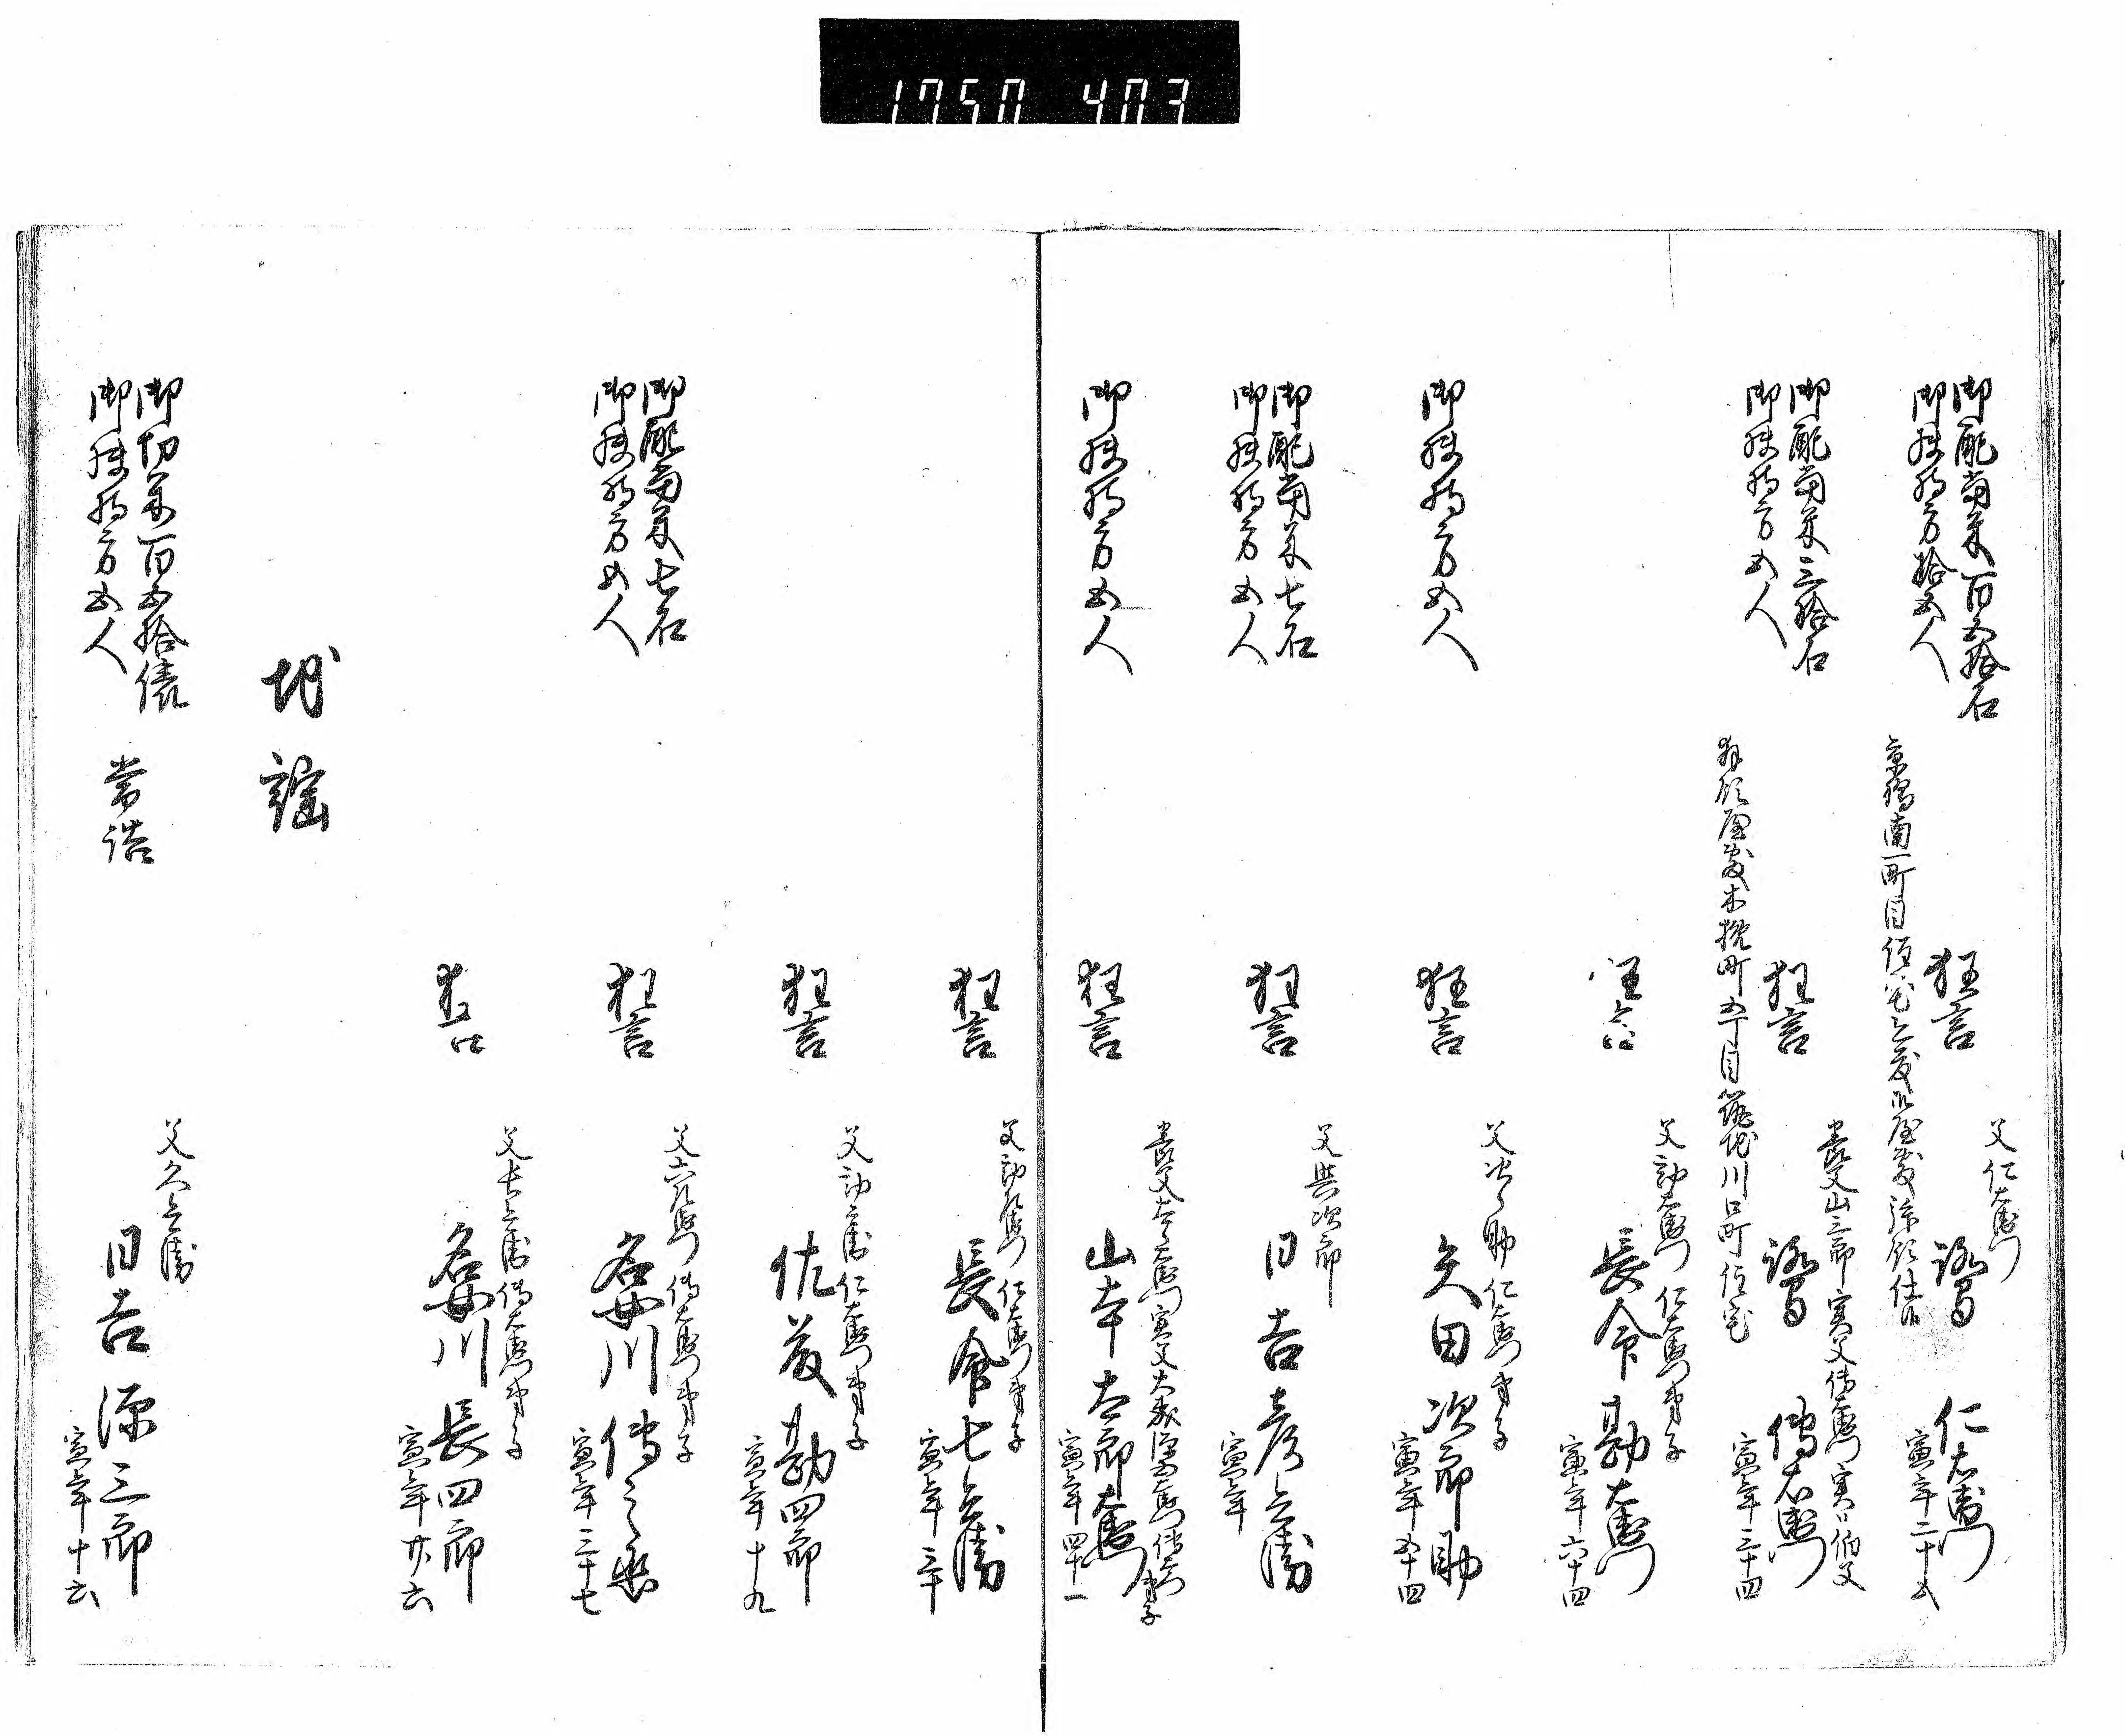 1750 403
御配当米百五拾石
御扶持方拾五人
狂言
父仁右衛門
鷺 仁右衛門
寅年二十五
京橋南一町目住宅
御配当米三拾石
御扶持方五人
狂言
養父山三郎 実父伝右衛門 実ハ伯父
鷺 伝右衛門
寅年三十四
拝領屋敷木挽町五丁目築地川口町住宅
狂言
父勘右衛門 仁右衛門弟子
長命 勘右衛門
寅年六十四
御扶持方五人
狂言
仁右衛門弟子
矢田 次郎助
寅年五十四
御配当米七石
御扶持方五人
狂言
父與次郎
日吉 彦兵衛
寅年
御扶持方五人
狂言
山本 太郎右衛門
寅年四十一
狂言
仁右衛門弟子
長命 七兵衛
寅年三十
狂言
父勘兵衛 仁右衛門弟子
佐藤 勘四郎
寅年十九
御配当米七石
御扶持方五人
狂言
伝右衛門弟子
名女川 伝之丞
寅年三十七
狂言
父七兵衛 伝右衛門弟子
名女川 長四郎
寅年廿六
地謡
御切米百五拾俵
御扶持方五人
常詰
父久兵衛
日吉 源三郎
寅年十六